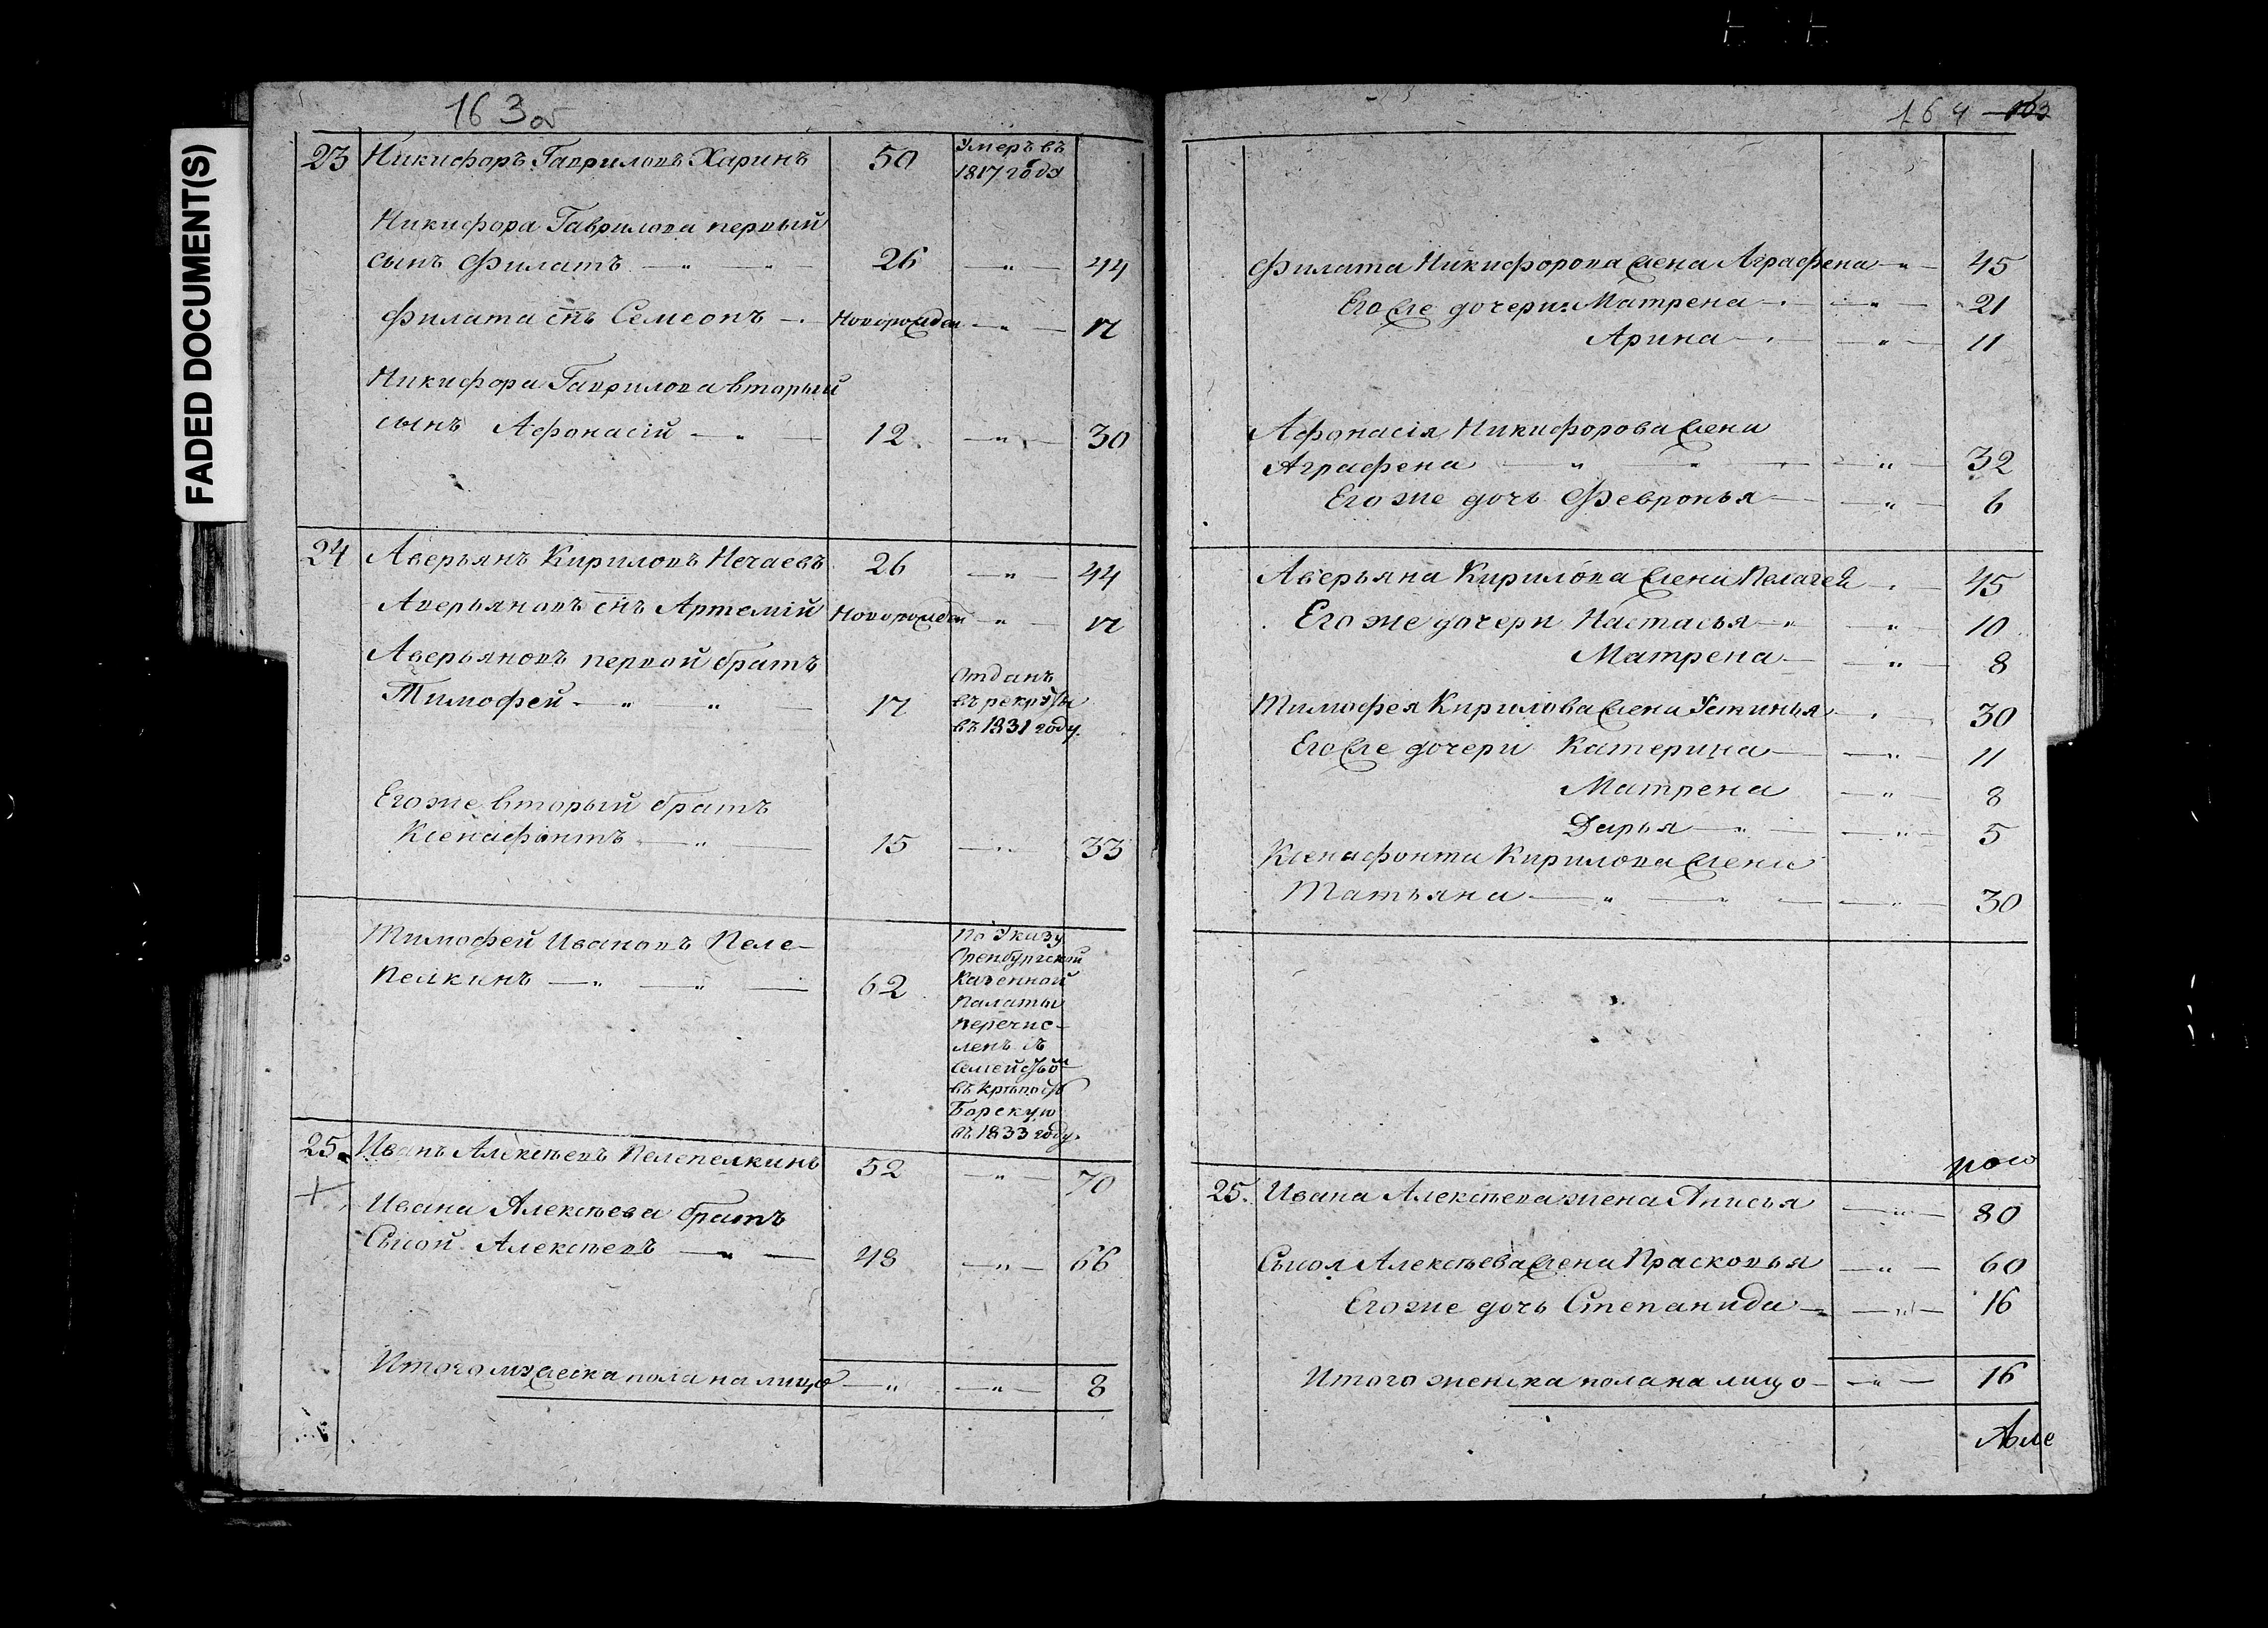 FADED DOCUMENT(S)
163 об
23 Никифоръ Гавриловъ Харинъ 50 Умеръ въ 1817 года
Никифора Гаврилова первый
сынъ Филатъ 26 44
Филата снъ Семеонъ Новорожден 17
Никифора Гаврилова вторый
сынъ Афонасій 12 30
24 Аверьянъ Кириловъ Нечаевъ 26 44
Аверьяновъ снъ Артемій Новорожден 17
Аверьяновъ первой братъ
Тимофей 17 Отданъ въ рекруты въ 1831 году.
Его же вторый братъ
Ксенафонтъ 15 33
Тимофей Ивановъ Пеле-
пелкинъ 62
По Указу
Оренбургской
Казенной
Палаты
перечис-
ленъ съ
семейством
въ крѣпость
Борскую
въ 1833 году.
25. Иванъ Алексѣевъ Пелепелкинъ 52 70
Ивана Алексѣева братъ
Сысой Алексѣевъ 48 66
Итого мужеска пола на лицо 8
164 163
Филата Никифорова жена Аграфена 45
Его же дочери: Матрена 21
Арина 11
Афонасія Никифорова жена
Аграфена 32
Его же дочь Февронья 6
Аверьяна Кирилова жена Пелагея 45
Его же дочери Настасья 10
Матрена 8
Тимофея Кирилова жена Устинья 30
Его же дочери Катерина 11
Матрена 8
Дарья 5
Ксенафонта Кирилова жена
Татьяна 30
25. Ивана Алексѣева жена Анисья 80
Сысоя Алексѣева жена Прасковья 60
Его же дочь Степанида 16
Итого женска пола на лицо 16